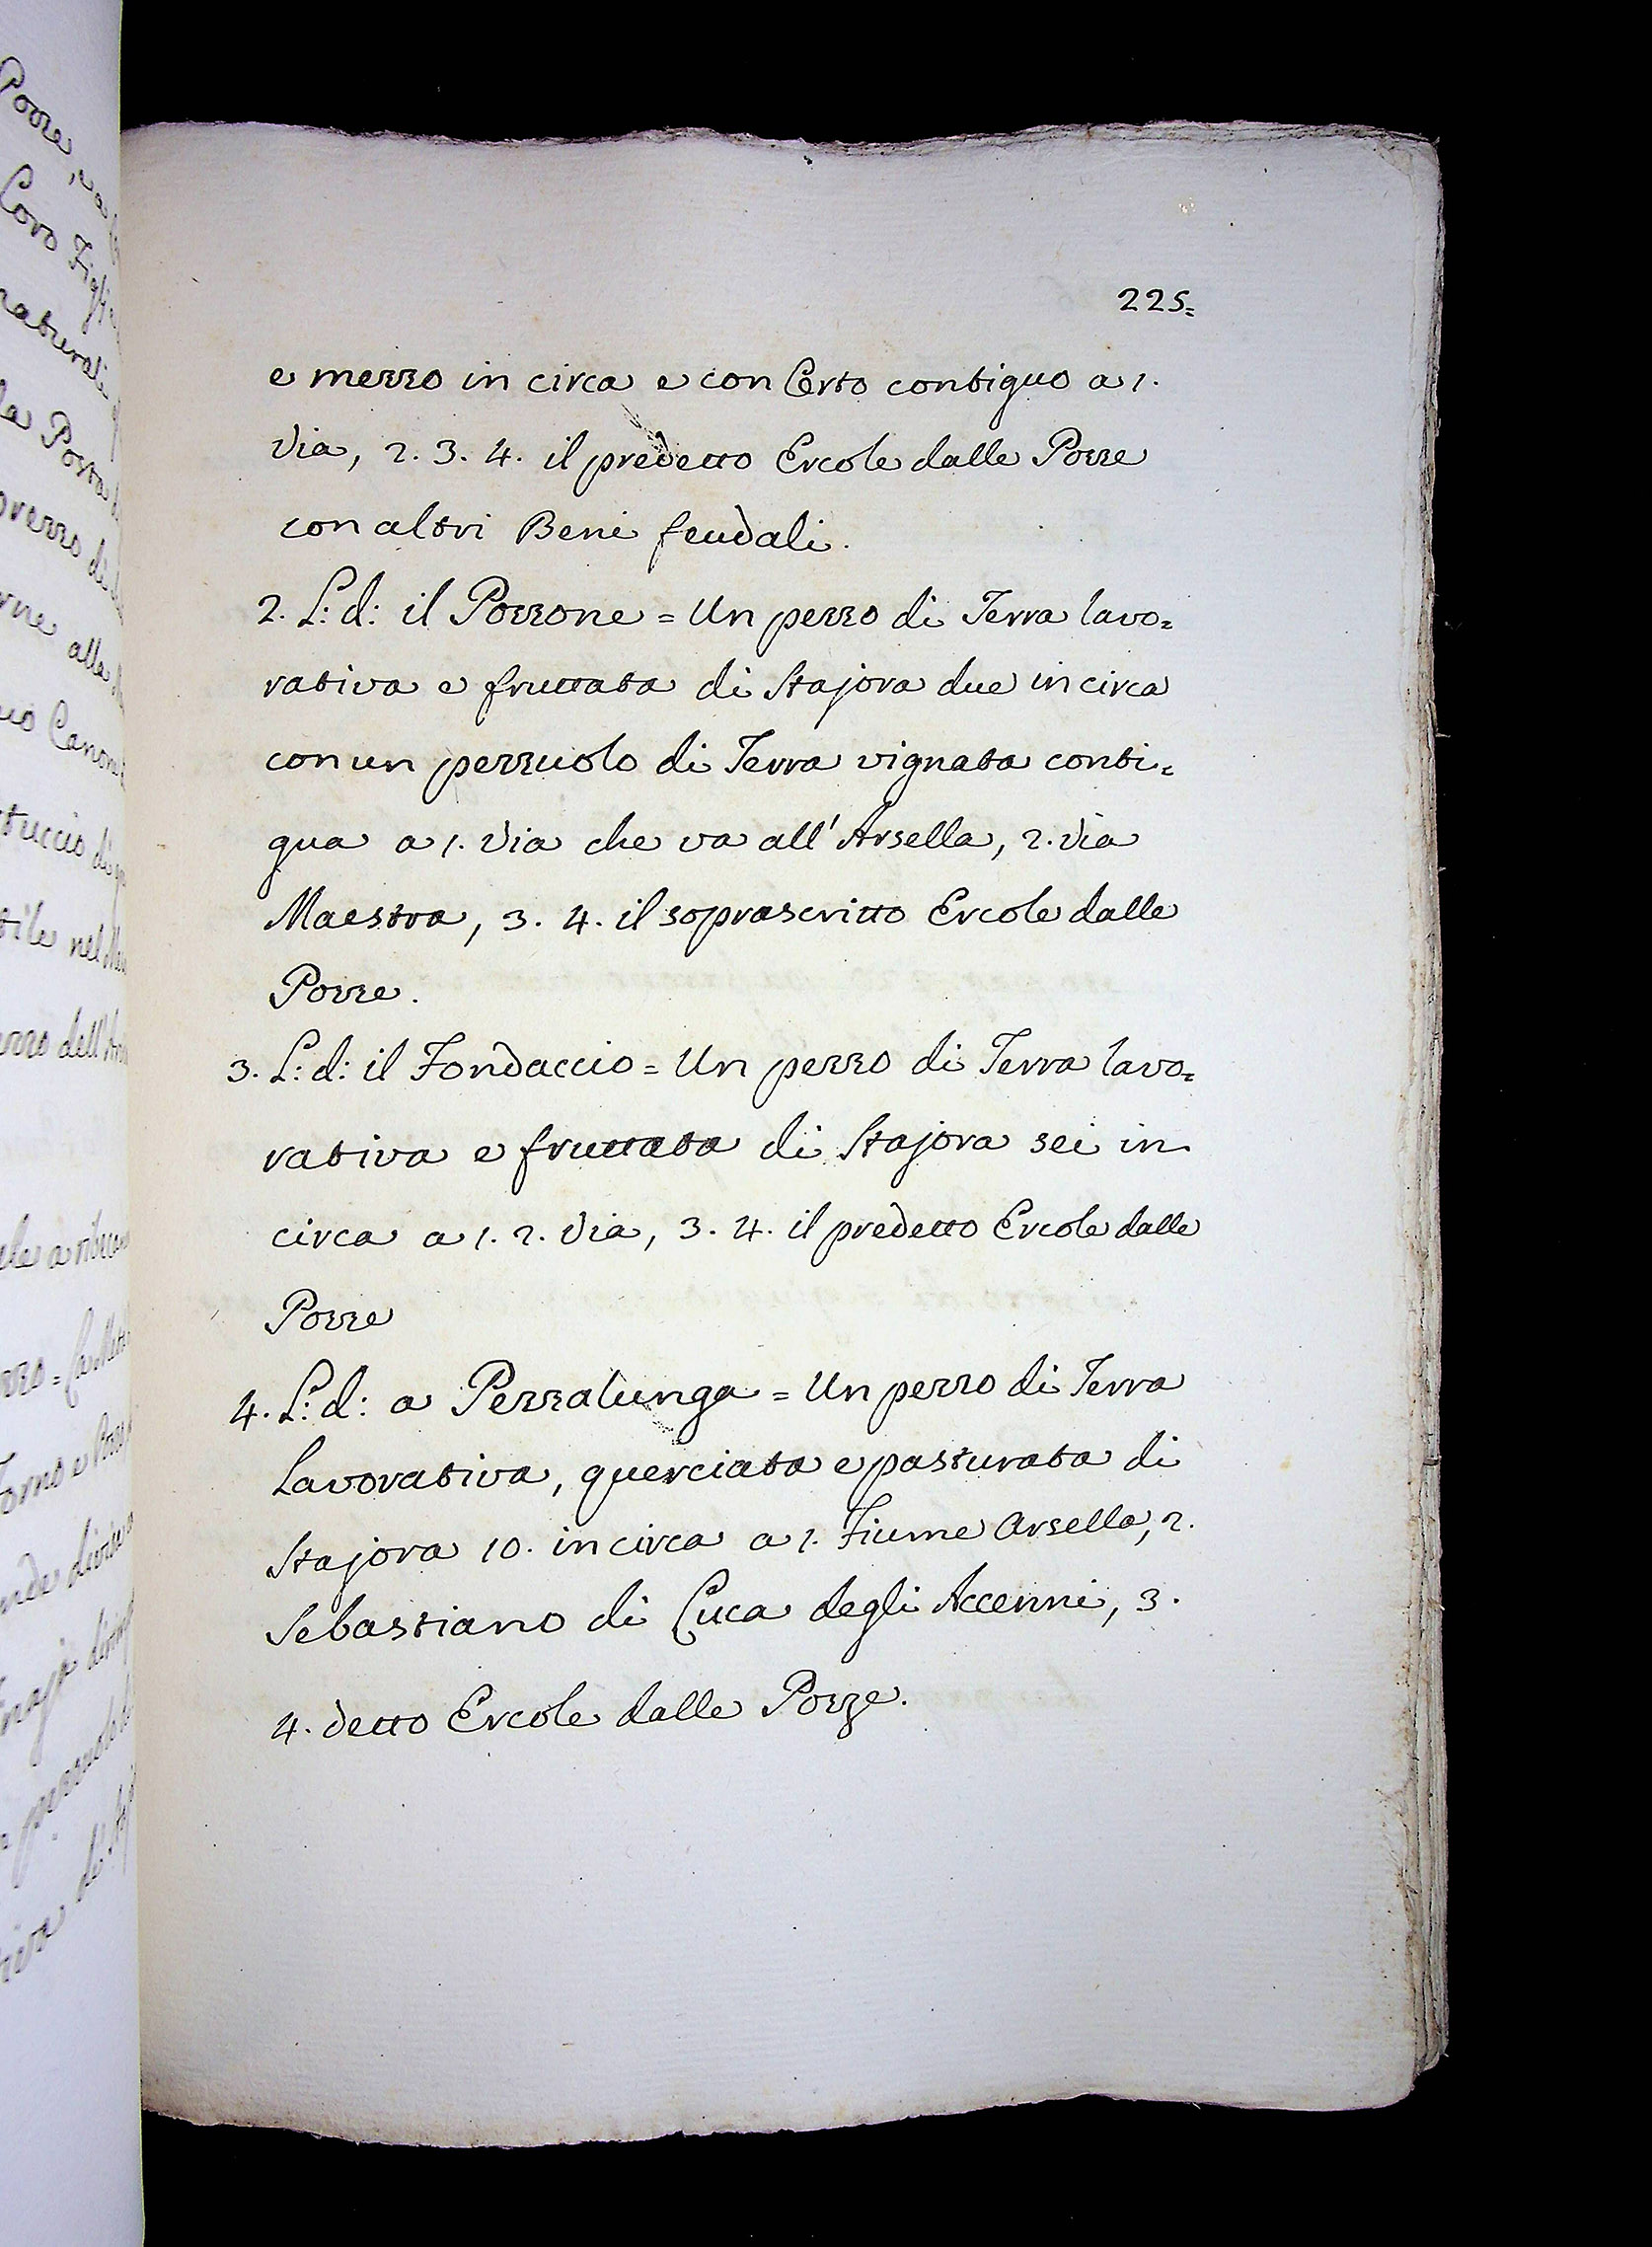 225=
e mezzo in circa e con Certo contiguo a 1.
Via, 2. 3. 4. il predetto Ercole dalle Pozze
con altri Beni feudali.
2. L: d: il Pozzone = Un pezzo di Terra lavo=
rativa e fruttata di Stajora due in circa
con un pezzuolo di Terra vignata conti=
gua a 1. Via che va all'Arsella, 2. Via
Maestra, 3. 4. il soprascritto Ercole dalle
Pozze.
3. L: d: il Fondaccio = Un pezzo di Terra lavo=
rativa e fruttata di Stajora sei in
circa a 1. 2. Via, 3. 4. il predetto Ercole dalle
Pozze
4. L: d: a Pezzalunga = Un pezzo di Terra
Lavorativa, querciata e pasturata di
Stajora 10. in circa a 1. Fiume Arsella, 2.
Sebastiano di Luca degli Accenni, 3.
4. detto Ercole dalle Pozze.